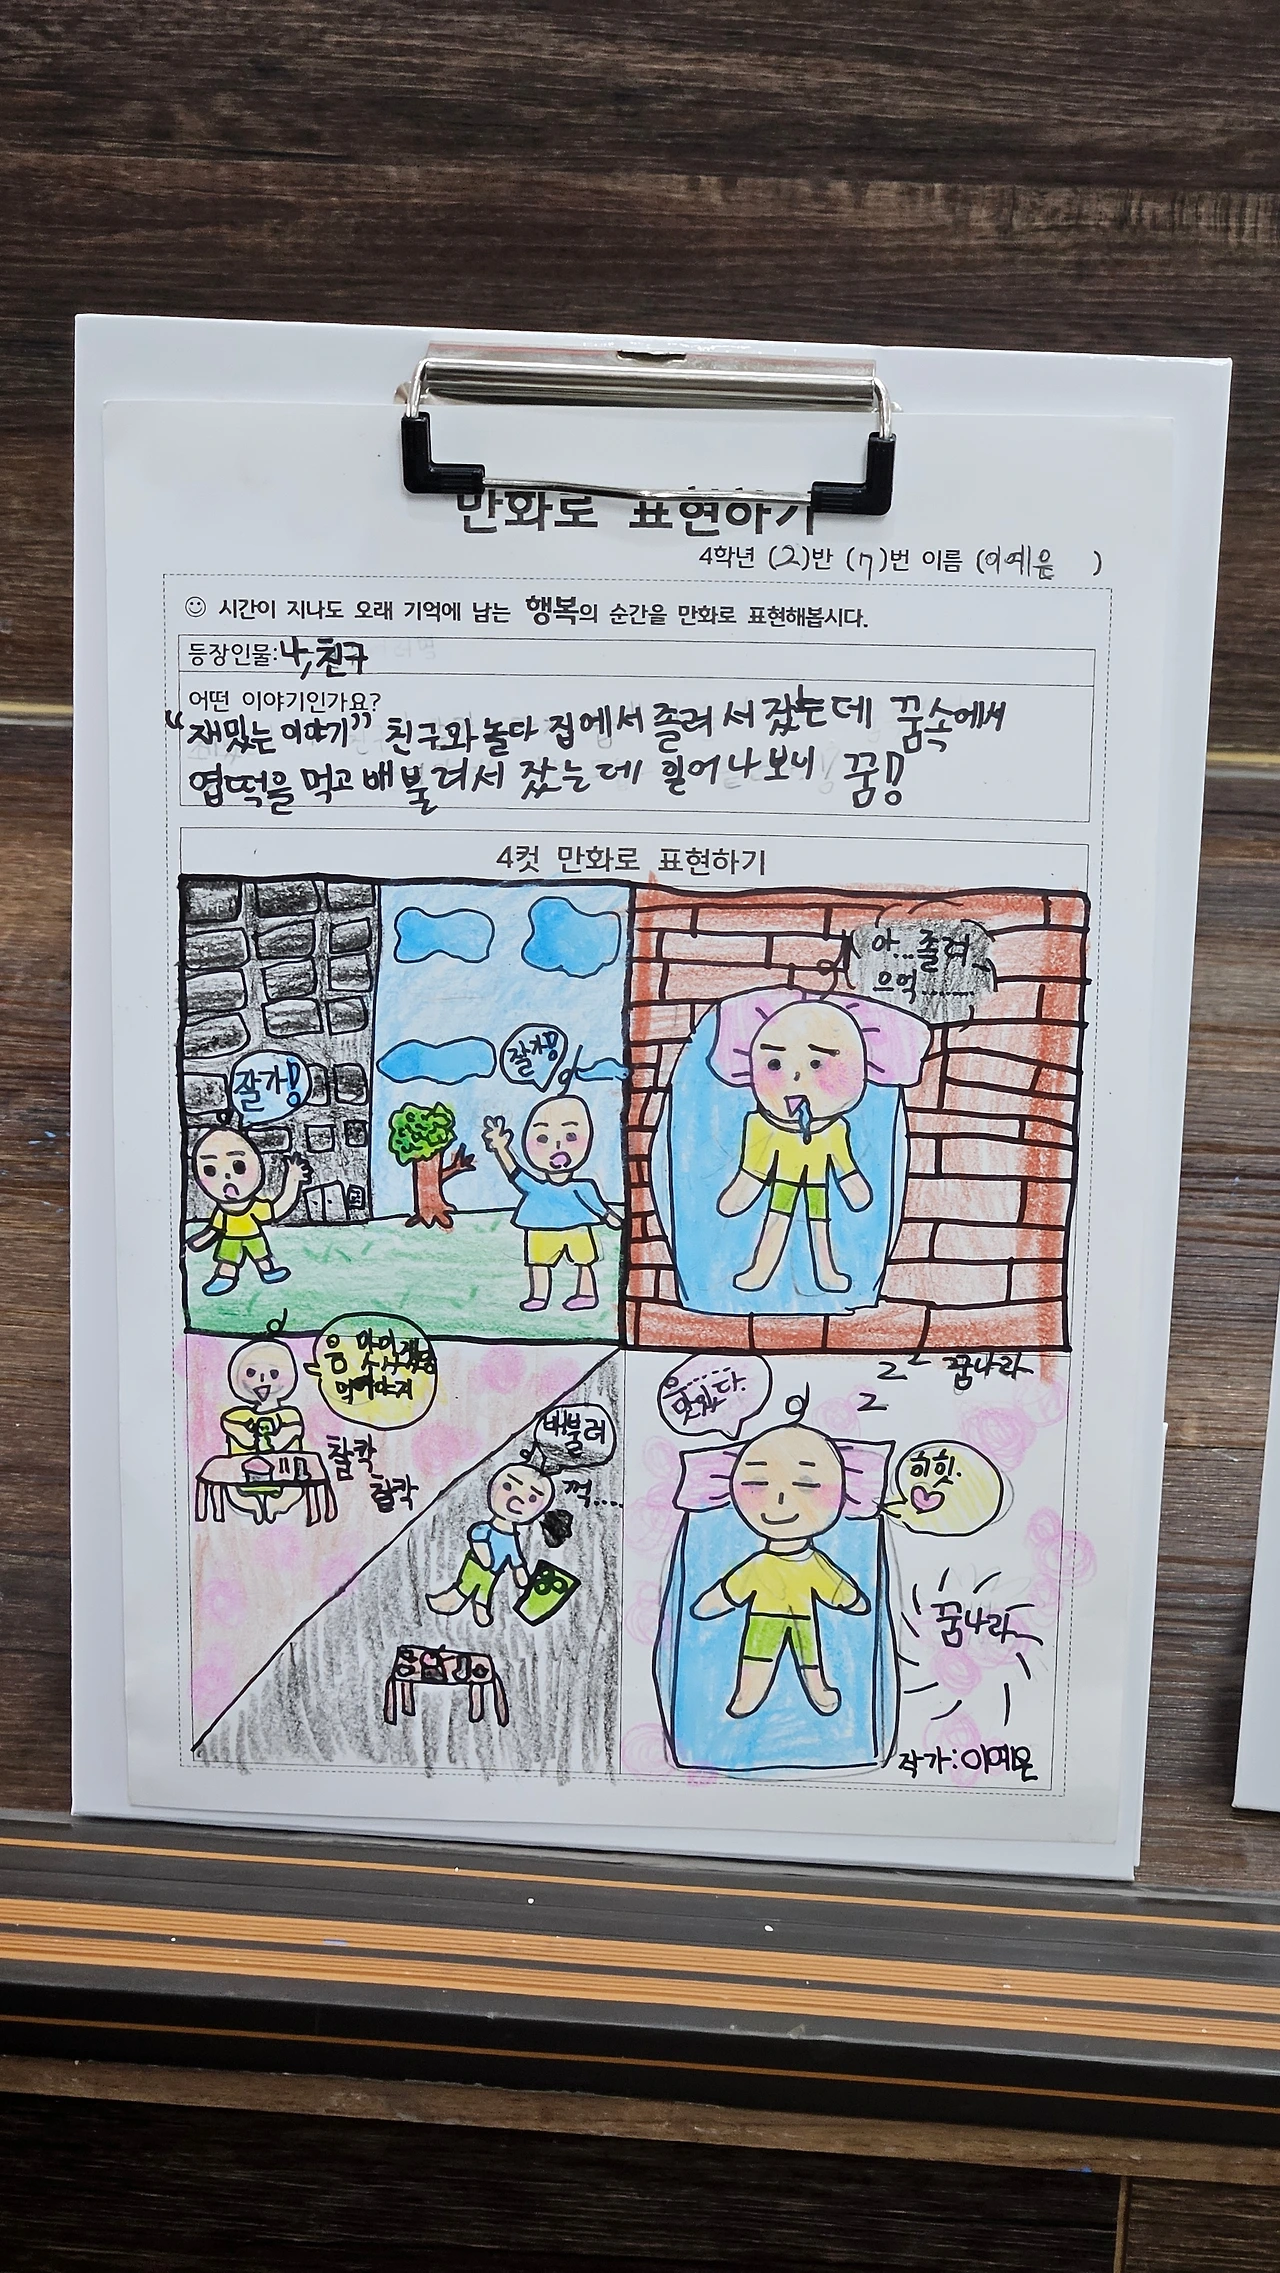 만화로 표현하기
4학년 (2)반 (7)번 이름 (이예은)
시간이 지나도 오래 기억에 남는 행복의 순간을 만화로 표현해봅시다.
등장인물:나,친구
어떤 이야기인가요?
“재밌는 이야기” 친구와 놀다 집에서 졸려서 잤는데 꿈속에서
엽떡을 먹고 배불러서 잤는데 일어나보니 꿈!
4컷 만화로 표현하기
잘가!
잘가!
아...졸려
으억........
음 맛있겠당
먹어야지
찰칵
찰칵
배불러
꺽....
zzz 꿈나라
맛있다.
히힛.
꿈나라
작가:이예은